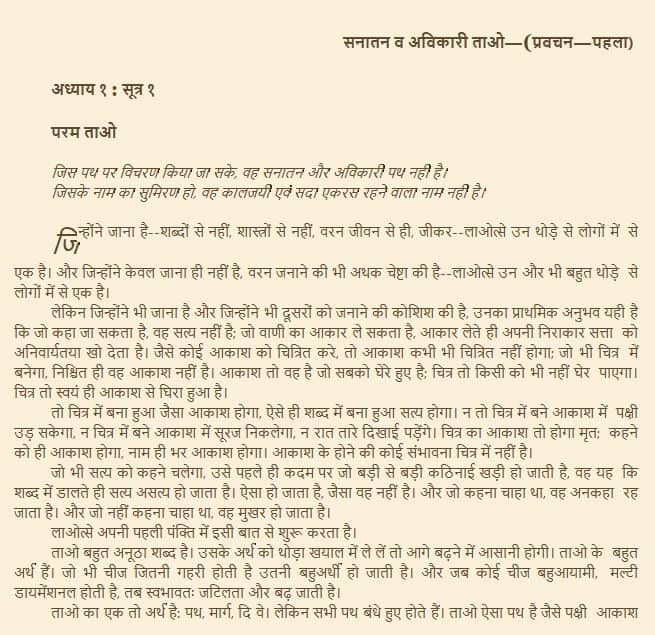 सनातन व अविकारी ताओ—(प्रवचन—पहला)
अध्याय १ : सूत्र १
परम ताओ
जिस पथ पर विचरण किया जा सके, वह सनातन और अविकारी पथ नहीं है।
जिसके नाम का सुमिरण हो, वह कालजयी एवं सदा एकरस रहने वाला नाम नहीं है।
जिन्होंने जाना है--शब्दों से नहीं, शास्त्रों से नहीं, वरन जीवन से ही, जीकर--लाओत्से उन थोड़े से लोगों में से
एक है। और जिन्होंने केवल जाना ही नहीं है, वरन जनाने की भी अथक चेष्टा की है--लाओत्से उन और भी बहुत थोड़े से
लोगों में से एक है।
लेकिन जिन्होंने भी जाना है और जिन्होंने भी दूसरों को जनाने की कोशिश की है, उनका प्राथमिक अनुभव यही है
कि जो कहा जा सकता है, वह सत्य नहीं है; जो वाणी का आकार ले सकता है, आकार लेते ही अपनी निराकार सत्ता को
अनिवार्यतया खो देता है। जैसे कोई आकाश को चित्रित करे, तो आकाश कभी भी चित्रित नहीं होगा; जो भी चित्र में
बनेगा, निश्चित ही वह आकाश नहीं है। आकाश तो वह है जो सबको घेरे हुए है; चित्र तो किसी को भी नहीं घेर पाएगा।
चित्र तो स्वयं ही आकाश से घिरा हुआ है।
तो चित्र में बना हुआ जैसा आकाश होगा, ऐसे ही शब्द में बना हुआ सत्य होगा। न तो चित्र में बने आकाश में पक्षी
उड़ सकेगा, न चित्र में बने आकाश में सूरज निकलेगा, न रात तारे दिखाई पड़ेंगे। चित्र का आकाश तो होगा मृत; कहने
को ही आकाश होगा, नाम ही भर आकाश होगा। आकाश के होने की कोई संभावना चित्र में नहीं है।
जो भी सत्य को कहने चलेगा, उसे पहले ही कदम पर जो बड़ी से बड़ी कठिनाई खड़ी हो जाती है, वह यह कि
शब्द में डालते ही सत्य असत्य हो जाता है। ऐसा हो जाता है, जैसा वह नहीं है। और जो कहना चाहा था, वह अनकहा रह
जाता है। और जो नहीं कहना चाहा था, वह मुखर हो जाता है।
लाओत्से अपनी पहली पंक्ति में इसी बात से शुरू करता है।
ताओ बहुत अनूठा शब्द है। उसके अर्थ को थोड़ा खयाल में ले लें तो आगे बढ़ने में आसानी होगी। ताओ के बहुत
अर्थ हैं। जो भी चीज जितनी गहरी होती है उतनी बहुअर्थी हो जाती है। और जब कोई चीज बहुआयामी, मल्टी
डायमेंशनल होती है, तब स्वभावतः जटिलता और बढ़ जाती है।
ताओ का एक तो अर्थ है: पथ, मार्ग, दि वे। लेकिन सभी पथ बंधे हुए होते हैं। ताओ ऐसा पथ है जैसे पक्षी आकाश